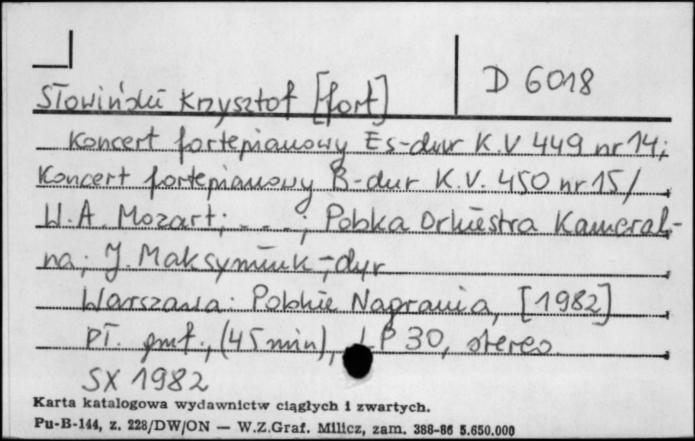 D 6018
Słowiński Krzysztof [fort]
Koncert fortepianowy Es-dur K.V 449 nr 14;
Koncert fortepianowy B-dur K.V. 450 nr 15/
W.A. Mozart; - - -; Polska Orkiestra Kameral-
na; J. Maksymiuk - dyr
Warszawa: Polskie Nagrania, [1982]
Pł. gmf., (45 min), LP 30, stereo
SX 1982
Karta katalogowa wydawnictw ciągłych i zwartych.
Pu-B-144, z. 228/DW/ON — W.Z.Graf. Milicz, zam. 388-86 5.650.000